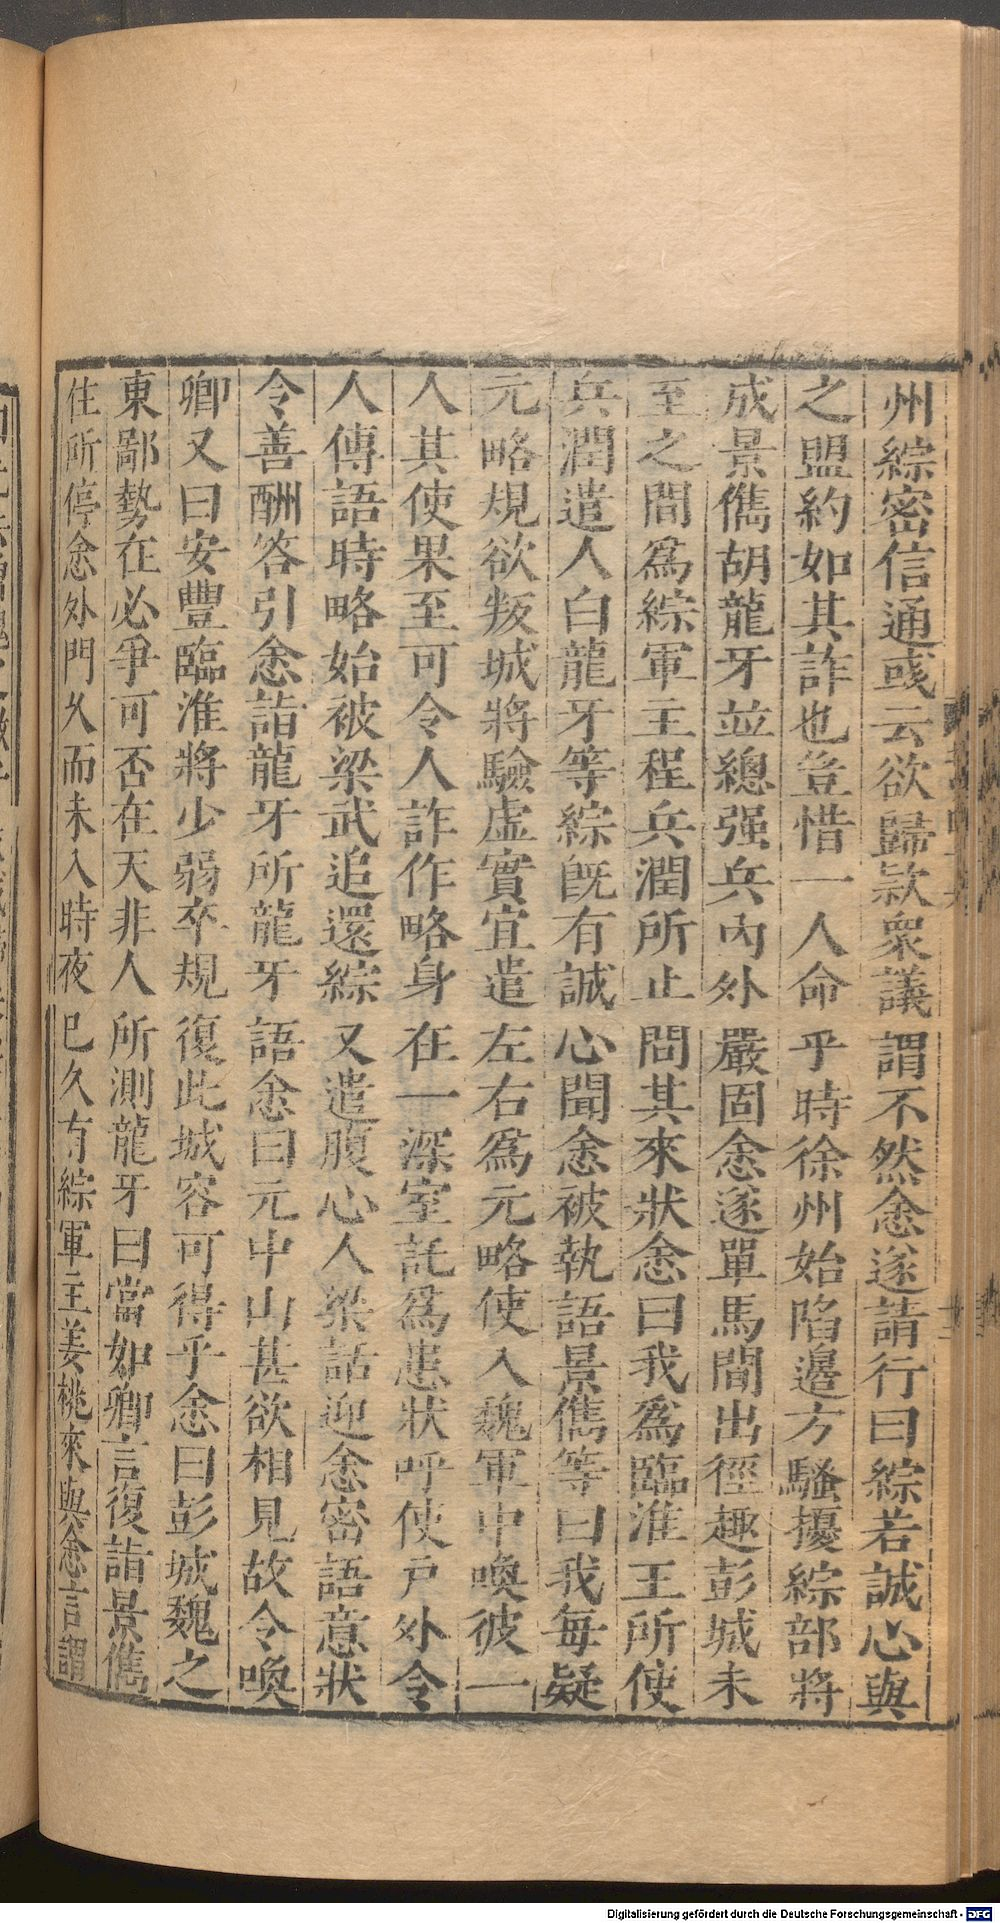 州綜密信通彧云欲歸欵衆議謂不然悆遂請行曰綜若誠心與
之盟約如其詐也豈惜一人命乎時徐州始陷邊方騷擾綜部將
成景儁胡龍牙並總强兵內外嚴固悆遂單馬間出徑趣彭城未
至之間爲綜軍主程兵潤所止問其來狀悆曰我爲臨淮王所使
兵潤遣人白龍牙等綜旣有誠心聞悆被執語景儁等曰我每疑
元略規欲叛城將驗虛實宜遣左右爲元略使入魏軍中喚彼一
人其使果至可令人詐作略身在一深室託爲患狀呼使戶外令
人傳語時略始被梁武追還綜又遣腹心人梁話迎悆密語意狀
令善酬答引悆詣龍牙所龍牙語悆曰元中山甚欲相見故令喚
卿又曰安豐臨淮將少弱卒規復此城容可得乎悆曰彭城魏之
東鄙勢在必爭可否在天非人所測龍牙曰當如卿言復詣景儁
住所停悆外門久而未入時夜巳久有綜軍主姜桃來與悆言謂
Digitalisierung gefördert durch die Deutsche Forschungsgemeinschaft - DFG